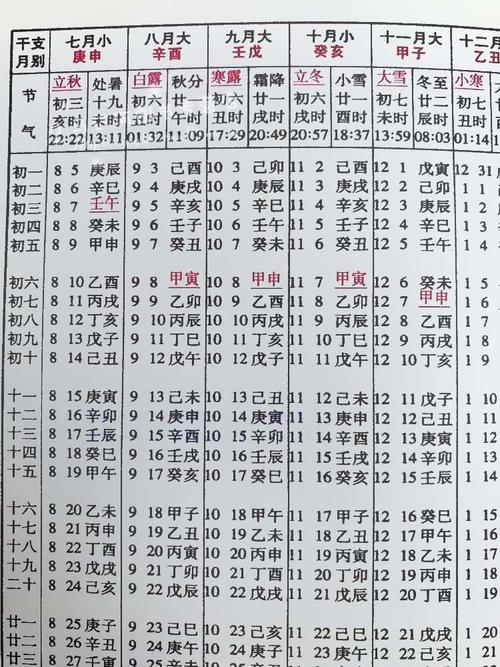 干支 七月小 八月大 九月大 十月小 十一月大 十二月
月别 庚申 辛酉 壬戌 癸亥 甲子 乙丑
立秋 处暑 白露 秋分 寒露 霜降 立冬 小雪 大雪 冬至 小寒
节 初三 十九 初六 廿一 初六 廿一 初六 廿一 初七 廿二 初七
气 亥时 未时 丑时 午时 酉时 戌时 戌时 酉时 未时 辰时 丑时
22:22 13:11 01:32 11:09 17:29 20:49 20:57 18:37 13:59 08:03 01:14
初一 8 5 庚辰 9 3 己酉 10 3 己卯 11 2 己酉 12 1 戊寅 12 31
初二 8 6 辛巳 9 4 庚戌 10 4 庚辰 11 3 庚戌 12 2 己卯 1 1
初三 8 7 壬午 9 5 辛亥 10 5 辛巳 11 4 辛亥 12 3 庚辰 1 2
初四 8 8 癸未 9 6 壬子 10 6 壬午 11 5 壬子 12 4 辛巳 1 3
初五 8 9 甲申 9 7 癸丑 10 7 癸未 11 6 癸丑 12 5 壬午 1 4
初六 8 10 乙酉 9 8 甲寅 10 8 甲申 11 7 甲寅 12 6 癸未 1 5
初七 8 11 丙戌 9 9 乙卯 10 9 乙酉 11 8 乙卯 12 7 甲申 1 6
初八 8 12 丁亥 9 10 丙辰 10 10 丙戌 11 9 丙辰 12 8 乙酉 1 7
初九 8 13 戊子 9 11 丁巳 10 11 丁亥 11 10 丁巳 12 9 丙戌 1 8
初十 8 14 己丑 9 12 戊午 10 12 戊子 11 11 戊午 12 10 丁亥 1 9
十一 8 15 庚寅 9 13 己未 10 13 己丑 11 12 己未 12 11 戊子 1 10
十二 8 16 辛卯 9 14 庚申 10 14 庚寅 11 13 庚申 12 12 己丑 1 11
十三 8 17 壬辰 9 15 辛酉 10 15 辛卯 11 14 辛酉 12 13 庚寅 1 12
十四 8 18 癸巳 9 16 壬戌 10 16 壬辰 11 15 壬戌 12 14 辛卯 1 13
十五 8 19 甲午 9 17 癸亥 10 17 癸巳 11 16 癸亥 12 15 壬辰 1 14
十六 8 20 乙未 9 18 甲子 10 18 甲午 11 17 甲子 12 16 癸巳 1 15
十七 8 21 丙申 9 19 乙丑 10 19 乙未 11 18 乙丑 12 17 甲午 1 16
十八 8 22 丁酉 9 20 丙寅 10 20 丙申 11 19 丙寅 12 18 乙未 1 17
十九 8 23 戊戌 9 21 丁卯 10 21 丁酉 11 20 丁卯 12 19 丙申 1 18
二十 8 24 己亥 9 22 戊辰 10 22 戊戌 11 21 戊辰 12 20 丁酉 1 19
廿一 8 25 庚子 9 23 己巳 10 23 己亥 11 22 己巳 12 21 戊戌 1 20
廿二 8 26 辛丑 9 24 庚午 10 24 庚子 11 23 庚午 12 22 己亥 1 21
廿三 8 27 壬寅 9 25 辛未 10 25 辛丑 11 24 辛未 12 23 庚子 1 22